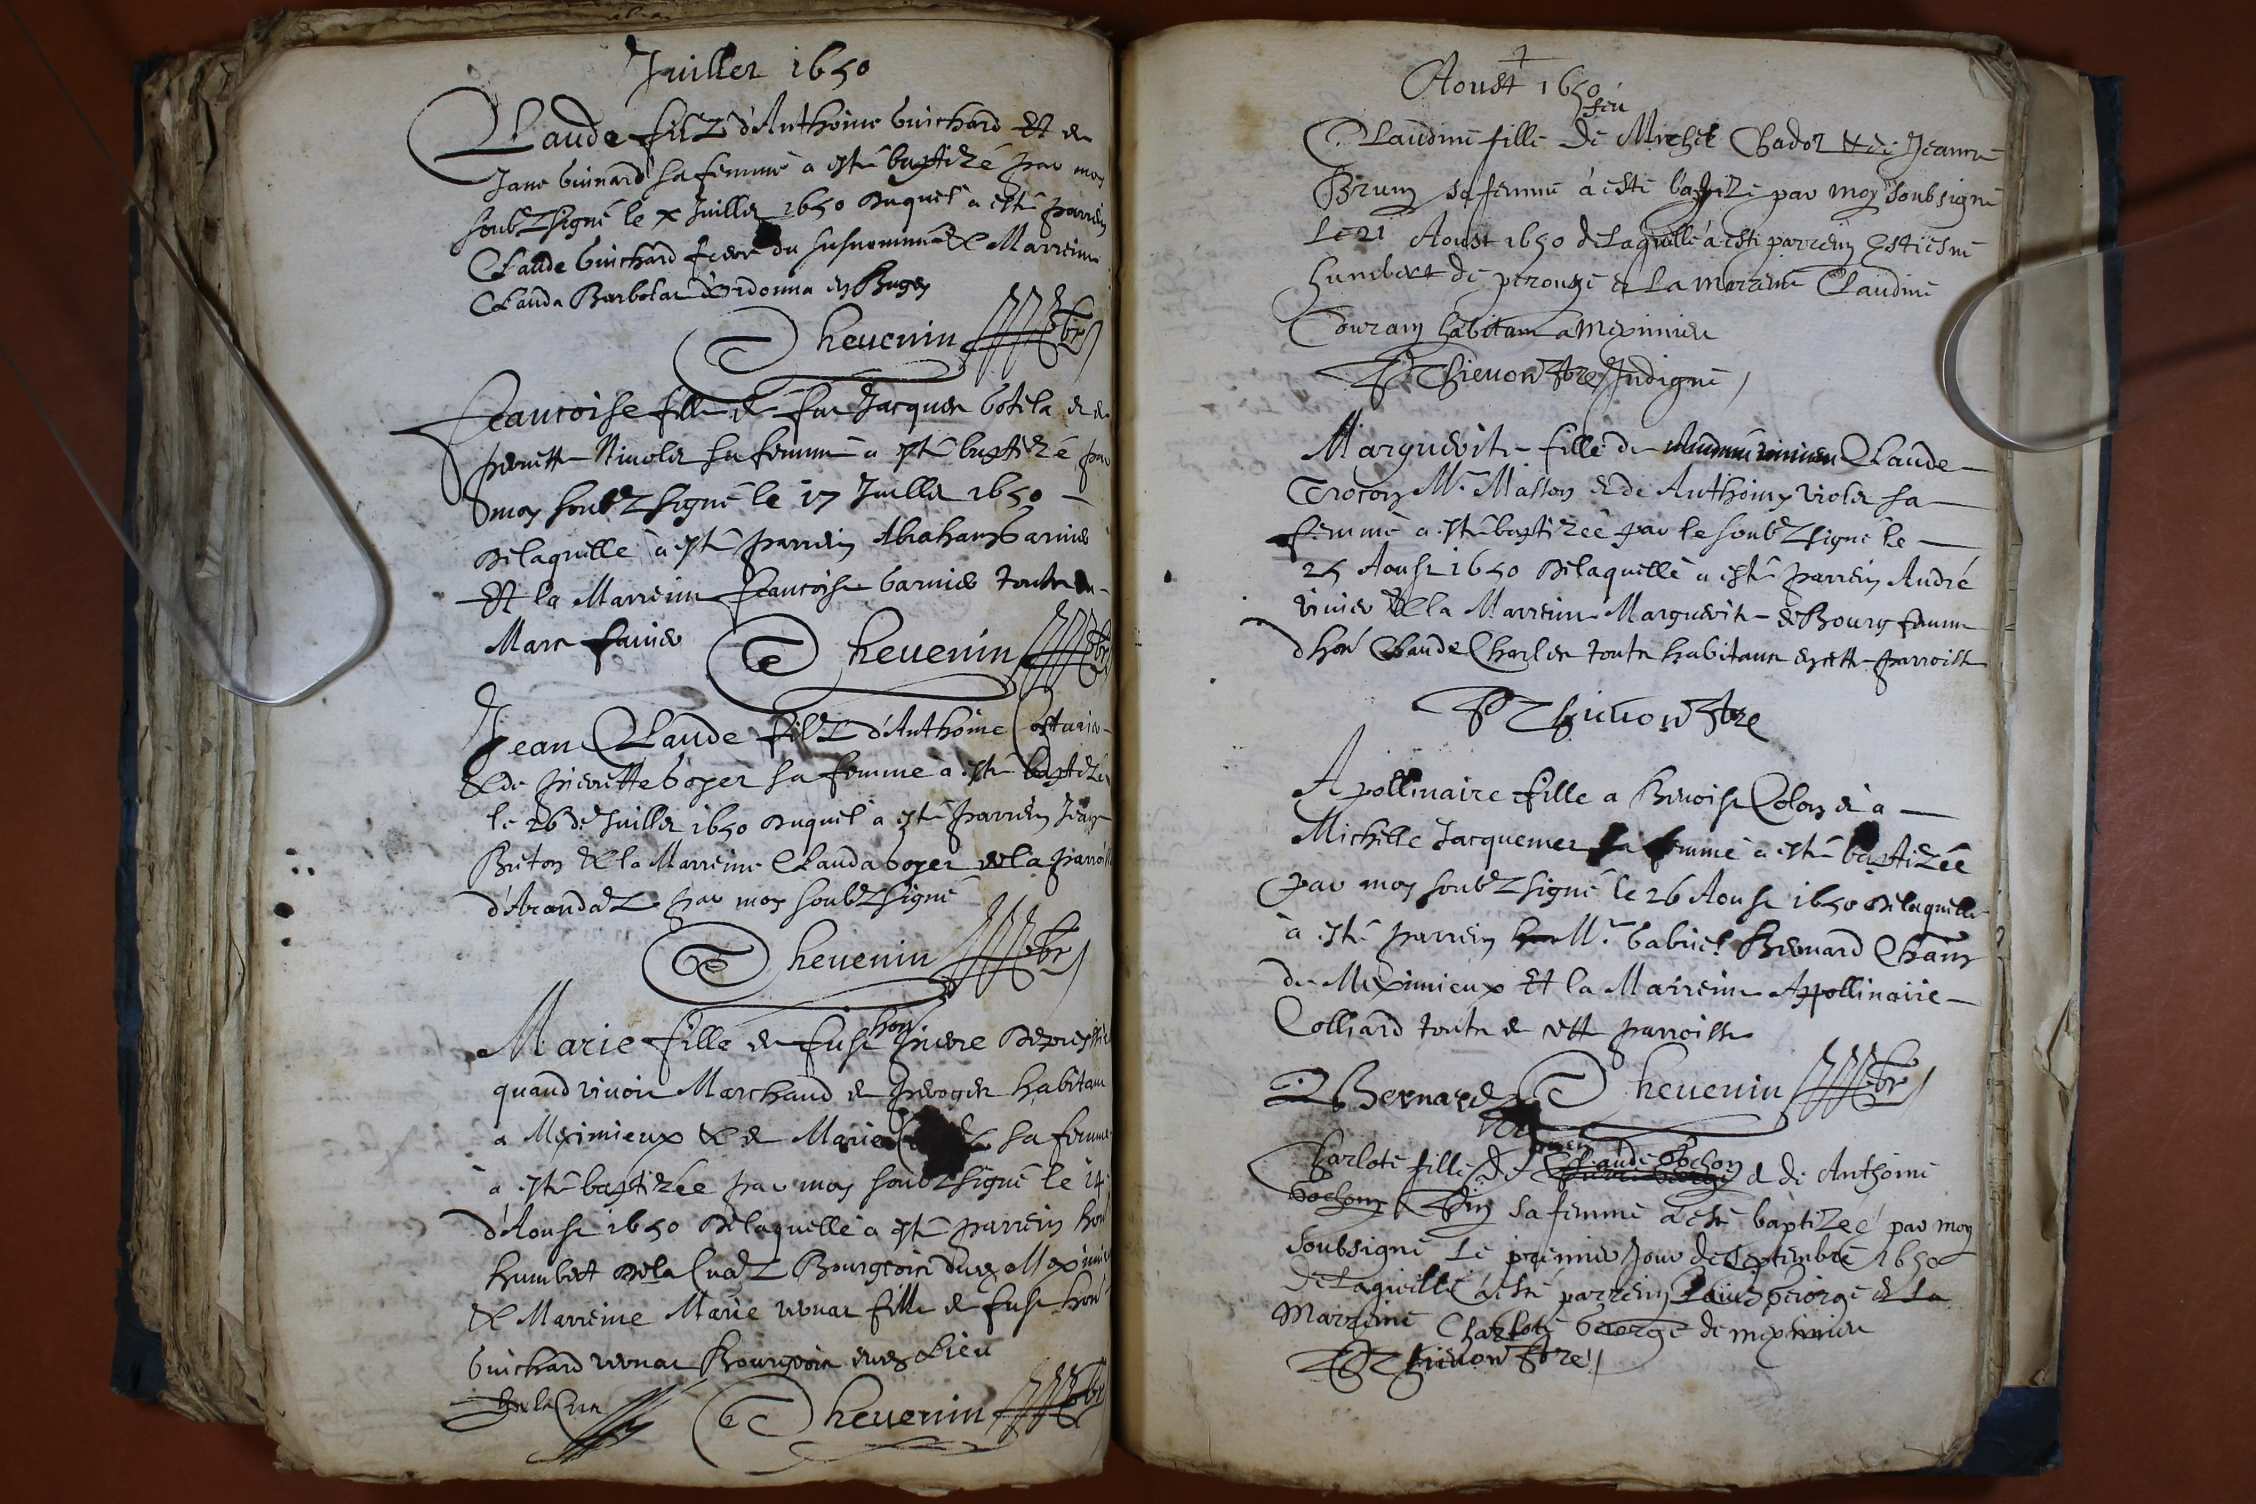 Juillet 1650
Claude filz d'Anthoine Guichard et de
Jane Guinard sa femme a esté baptizé par moy
soubzsigné le x Juillet 1650 duquel a esté parrein
Claude Guichard frere du susnommé et Marreine
Clauda Barbolat d'Ordonna en Bugey
Thevenin pbr
Francoise fille de feu Jacques Botela et de
pernette Nivolet sa femme a esté baptizé par
moy soubzsigné le 17 Juillet 1650
de laquelle a esté parrein Abraham Garnier
et la Marreine francoise Garnier toutz de
Marc
Thevenin pbr
Jean Claude filz d'Anthoine Costurie
et de pierrette Boyer sa femme a esté baptizé
le 26 de Juillet 1650 duquel a esté parrein Jean
Breton et la Marreine Clauda Boyer de la parroisse
d'Arandaz par moy soubzsigné
Thevenin pbr
Marie fille de fust hon pierre
quand vivoit Marchand de peroges habitant
a Meximieux et de Marie sa femme
à esté baptizée par moy soubzsigné le 14
d'Aoust 1650 de laquelle a esté parrein hon
humbert de la Cuaz Bourgeois dud Meximieu
et Marreine Marie fille de fust hon
Guichard Bourgeois dud Lieu
De la Cua Thevenin pbr
Aoust 1650
feu
Claudine fille de Michel Chador et de Jeanne
Brun sa femme à esté baptizé par moy soubsigné
Le 21 Aoust 1650 de Laquelle à esté parrein Estiesne
humbert de perouge et La marene Claudine
Couran habitant a meximieu
Thevenon pbre Indigne
Marguerite fille de Claude
Crocon Mc Masson et de Anthoine Violet sa
femme a esté baptizée par le soubzsigné le
25 Aoust 1650 de laquelle a esté parrein André
vivier et la Marreine Marguerite de Bourg femme
d'hon Claude Charles toutz habitans en cette parroisse
Thevenon pbre
Apollinaire fille a Benoist Colon et a
Michelle Jacquemet sa femme a esté baptizée
par moy soubzsigné le 26 Aoust 1650 de laquelle
à esté parrein Mc Gabriel Bernard
de Meximieux et la Marreine Appollinaire
Colliard toutz de cett parroisse
Bernard Thevenin pbr
Charlote fille de Claude Bochon et de Anthoine
sa femme a esté baptizeé par moy
soubsigné Le premier Jour de septembre 1650
de Laquelle a esté parrein George et La
Marreine Charlote George de meximieu
Thevenon pbre